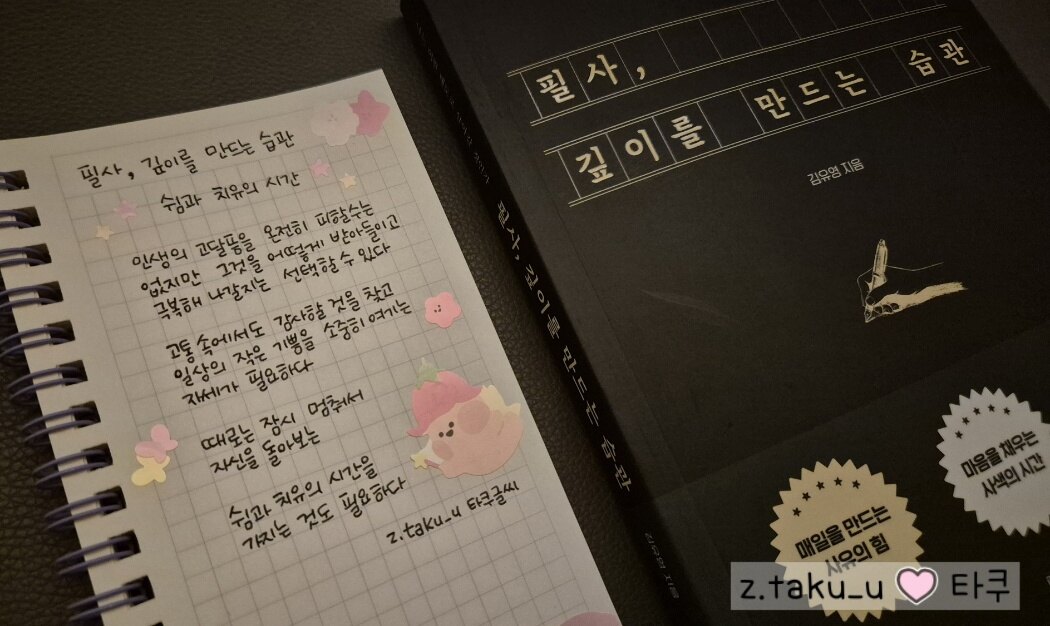 필사, 깊이를 만드는 습관
쉼과 치유의 시간
인생의 고달픔을 온전히 피할수는
없지만 그것을 어떻게 받아들이고
극복해 나갈지는 선택할 수 있다
고통 속에서도 감사할 것을 찾고
일상의 작은 기쁨을 소중히 여기는
자세가 필요하다
때로는 잠시 멈춰서
자신을 돌아보는
쉼과 치유의 시간을
가지는 것도 필요하다
z.taku_u 타쿠글씨
필사,
깊이를 만드는 습관
김유영 지음
필사, 깊이를 만드는 습관
김유영 지음
마음을 채우는
사색의 시간
매일을 만드는
사유의 힘
z.taku_u 타쿠